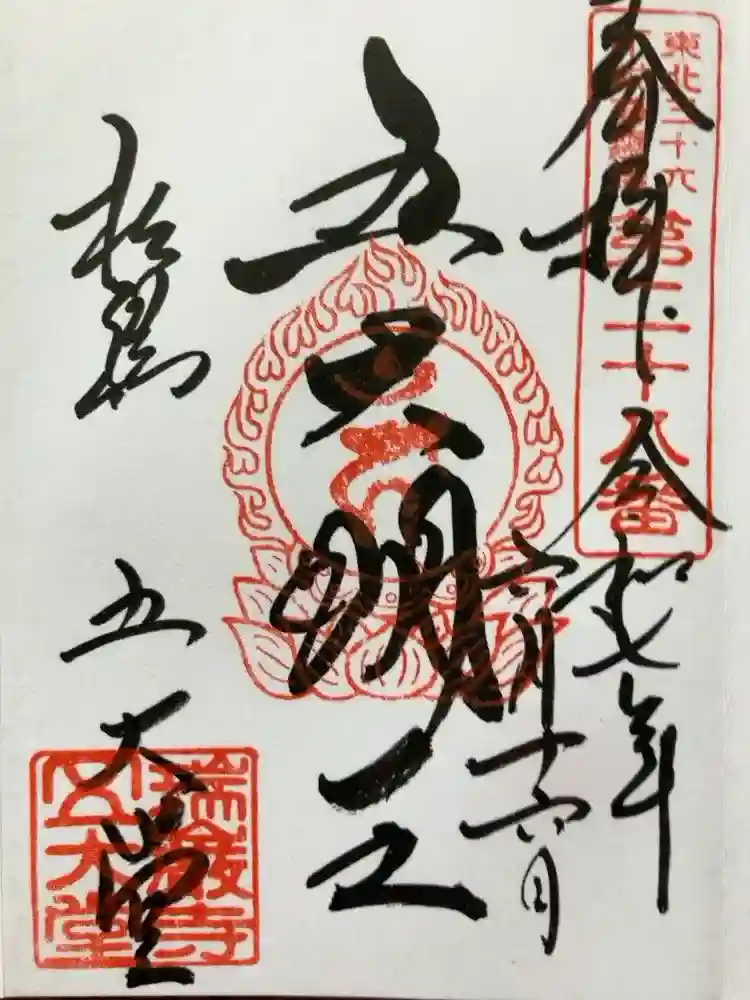 奉拝
令和七年
六月十六日
東北三十六
不動尊霊場
第二十八番
五大明王
松島
五大堂
瑞巌寺
五大堂